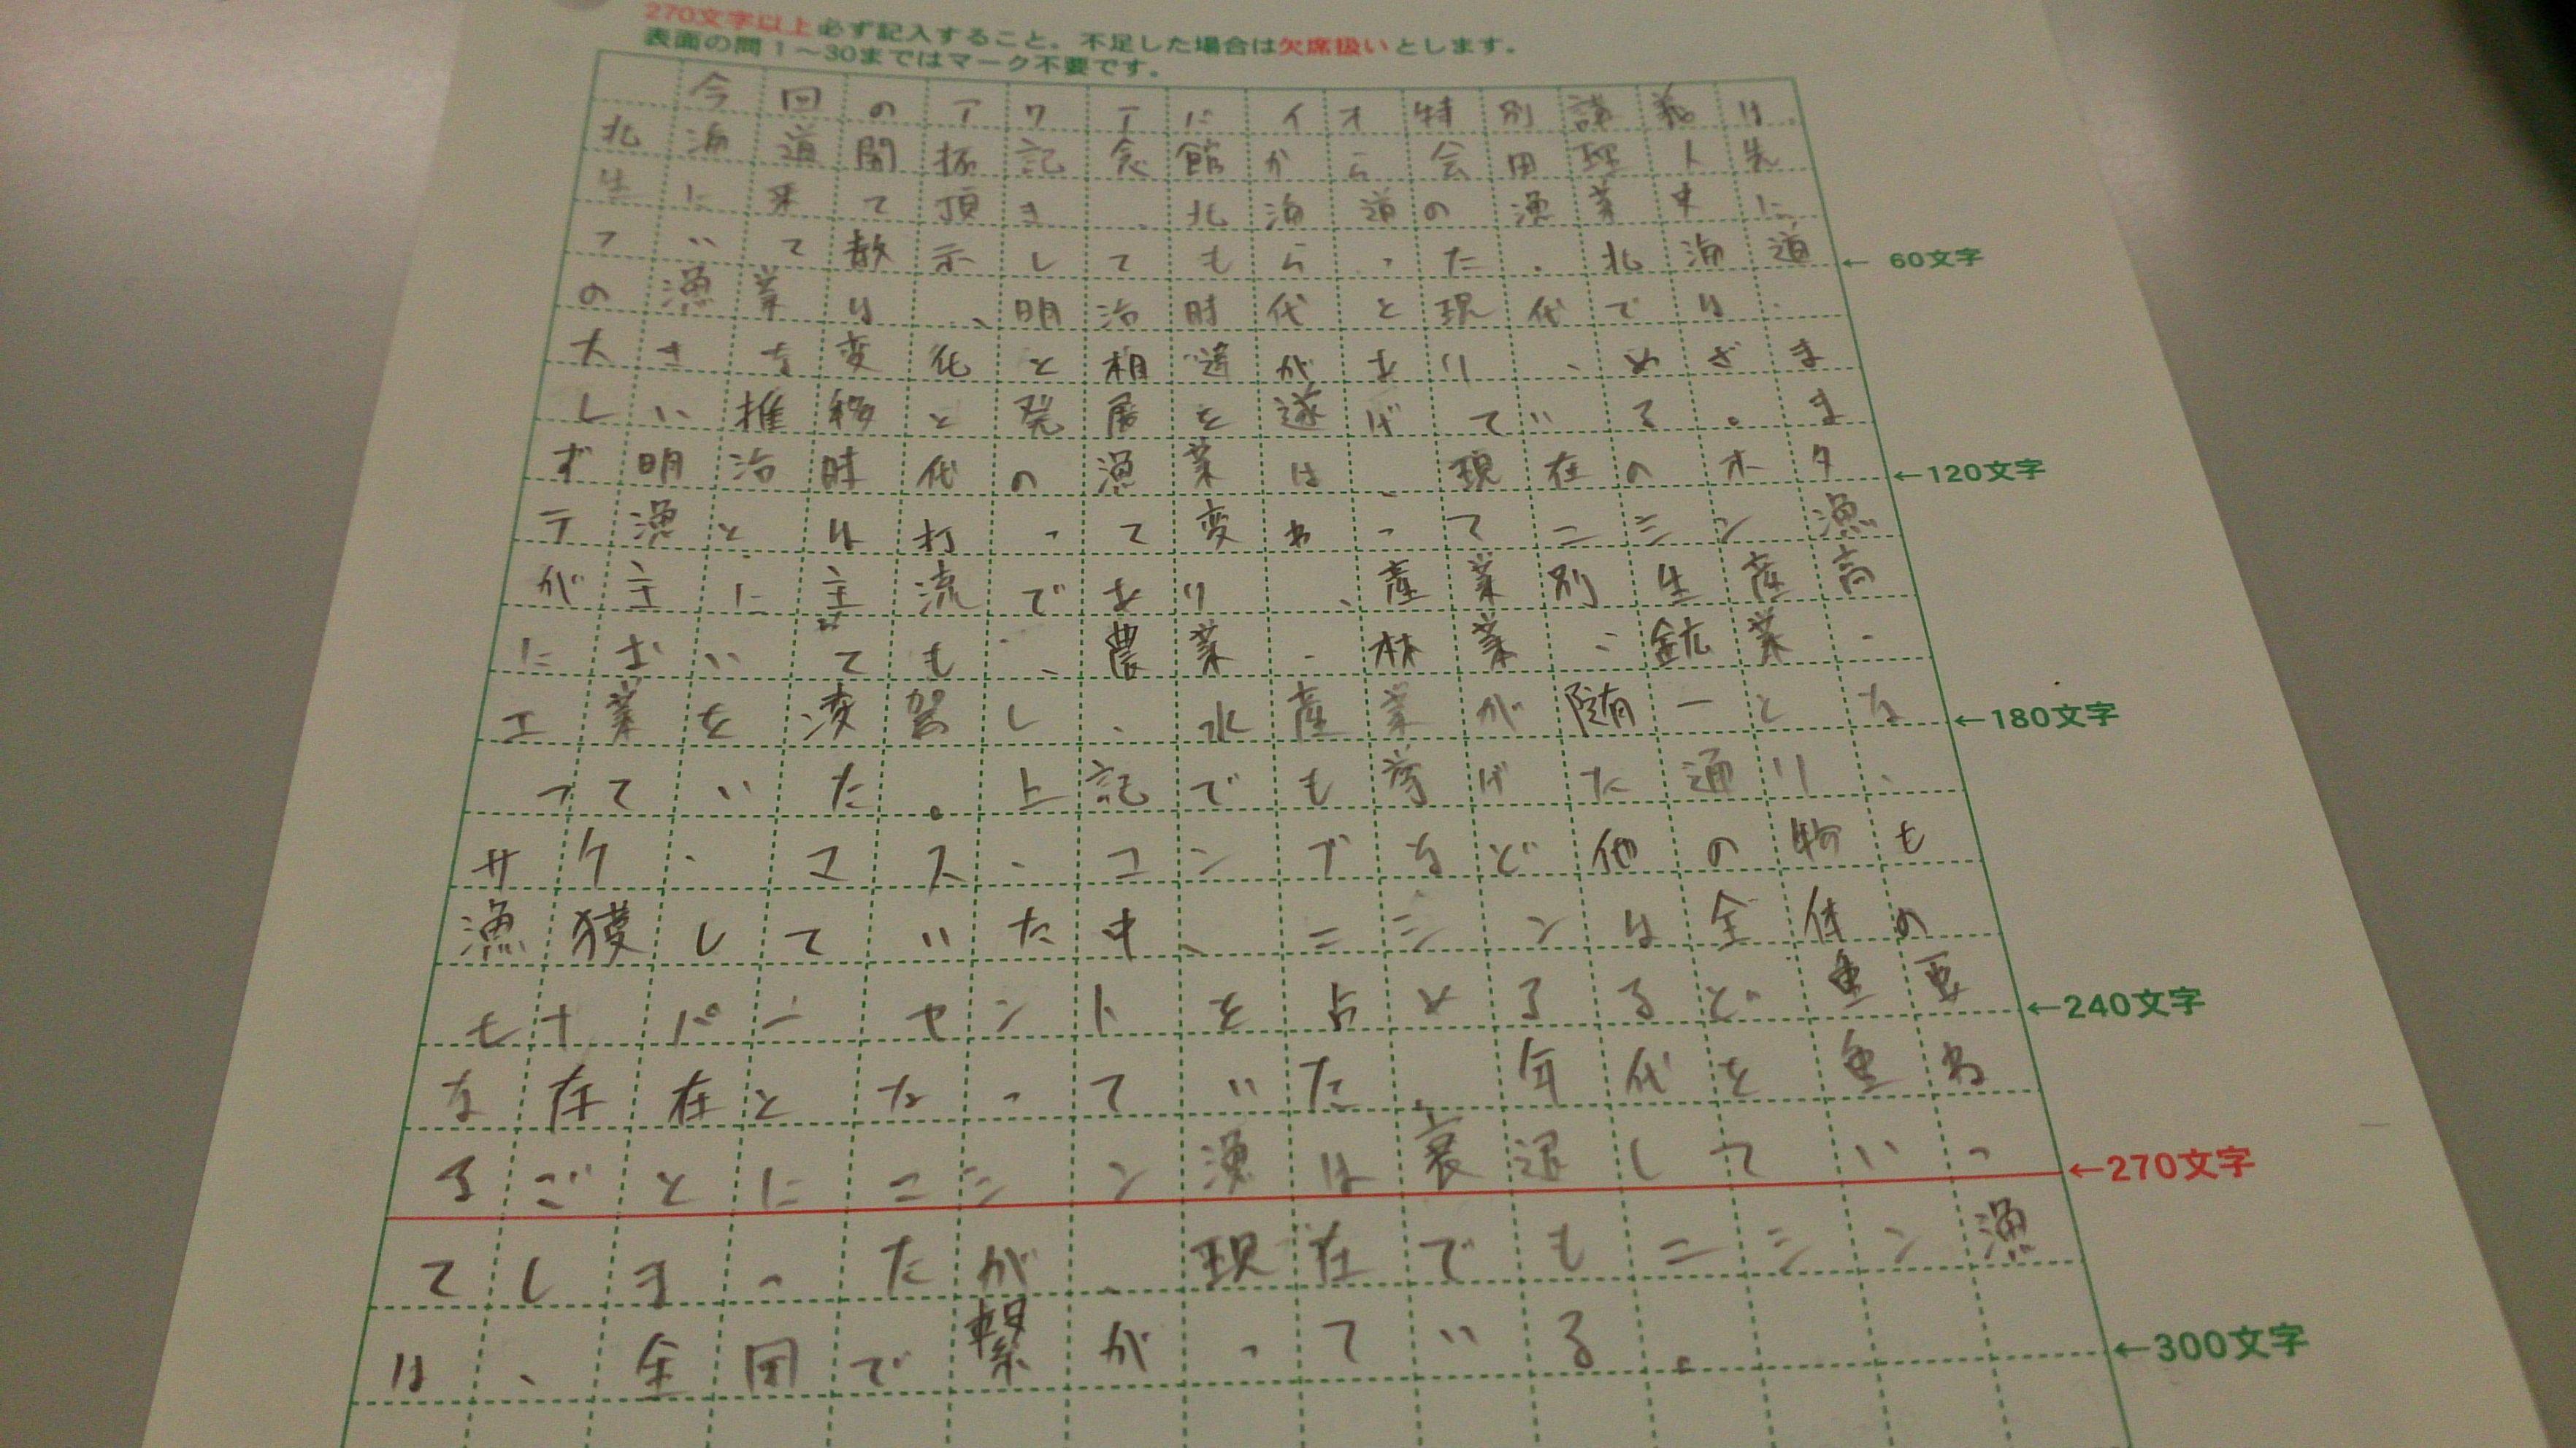 270文字以上必ず記入すること。不足した場合は欠席扱いとします。
表面の問1〜30まではマーク不要です。
今回のアクアバイオ特別講義は、
北海道開拓記念館から会田理人先
生に来て頂き、北海道の漁業史に
ついて教示してもらった。北海道
の漁業は、明治時代と現代では、
大きな変化と相違があり、めざま
しい推移と発展を遂げている。ま
ず明治時代の漁業は、現在のホタ
テ漁とは打って変わってニシン漁
が主に主流であり、産業別生産高
においても、農業、林業、鉱業、
工業を凌駕し、水産業が随一とな
っていた。上記でも挙げた通り、
サケ、マス、コンブなど他の物も
漁獲していた中、ニシンは全体の
七十パーセントを占めるると、重要
な存在となっていた。年代を重ね
るごとにニシン漁は衰退していっ
てしまったが、現在でもニシン漁
は、全国で繋がっている。
←60文字
←120文字
←180文字
←240文字
←270文字
←300文字